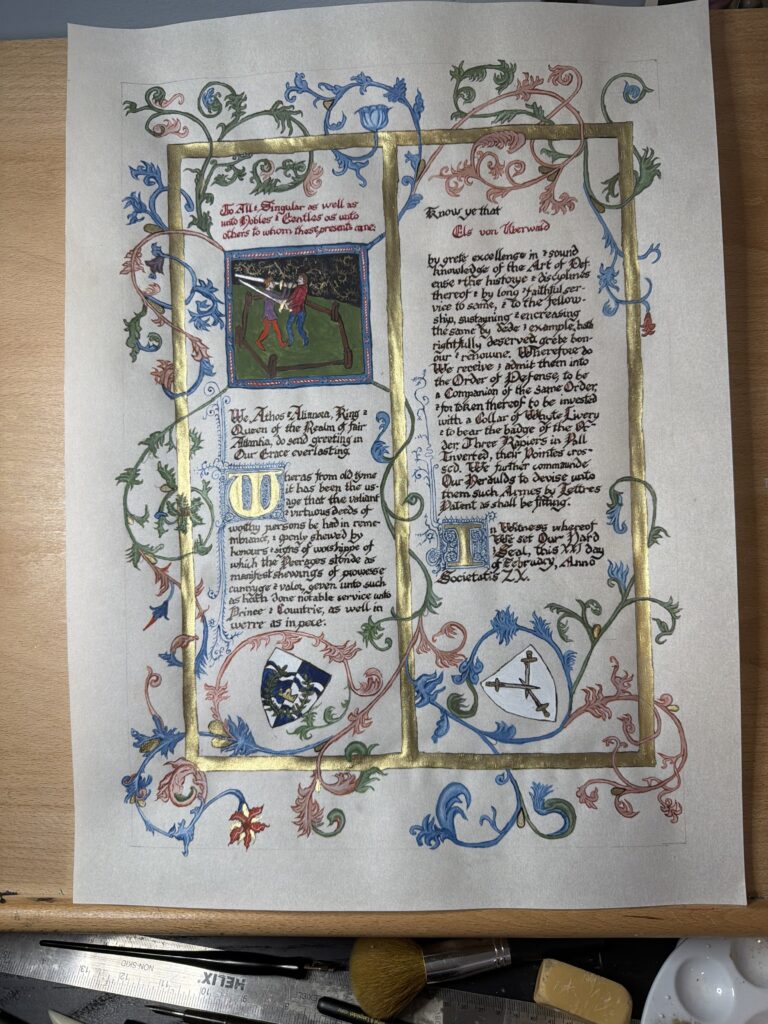 To All & Singular as well as
unto Nobles & Gentles as unto
others to whom these presents come:
We, Athos & Alianora, King &
Queen of the Realm of fair
Atlantia, do send greeting in
Our Grace everlasting.
Wheras from old tyme
it has been the us-
age that the valiant
& virtuous deeds of
worthy persons be had in reme-
mbrance, & openly shewed by
honours & signs of worshippe of
which the Peerages stonde as
manifest shewings of prowesse
cunnyge & valor, geven unto such
as hath done notable service unto
Prince & Countrie, as well in
werre as in pece:
Know ye that
Els von Uberwald
by grete excellence in & sound
knowledge of the Art of Def-
ense & the historye & disciplines
thereof & by long & faithful ser-
vice to same, & to the fellow-
ship, sustayning & encreasing
the same by dede & example, hath
rightfully deserved grete hon-
our & renowne. Wherefore do
We receive & admit them into
the Order of Defense, to be
a Companion of the same Order,
& for token thereof to be invested
with a Collar of Whyte Livery
& to bear the badge of the Or-
der, Three Rapiers in Pall
Inverted, their Pointes cros-
sed. We further commande
Our Heraulds to devise unto
them such Armes by Lettres
Patent as shall be fitting.
In Witness whereof
We set Our Hand
& Seal, this XXI day
of February, Anno
Societatis LX.
HELIX
NON-SKID
13
12
11
10
9